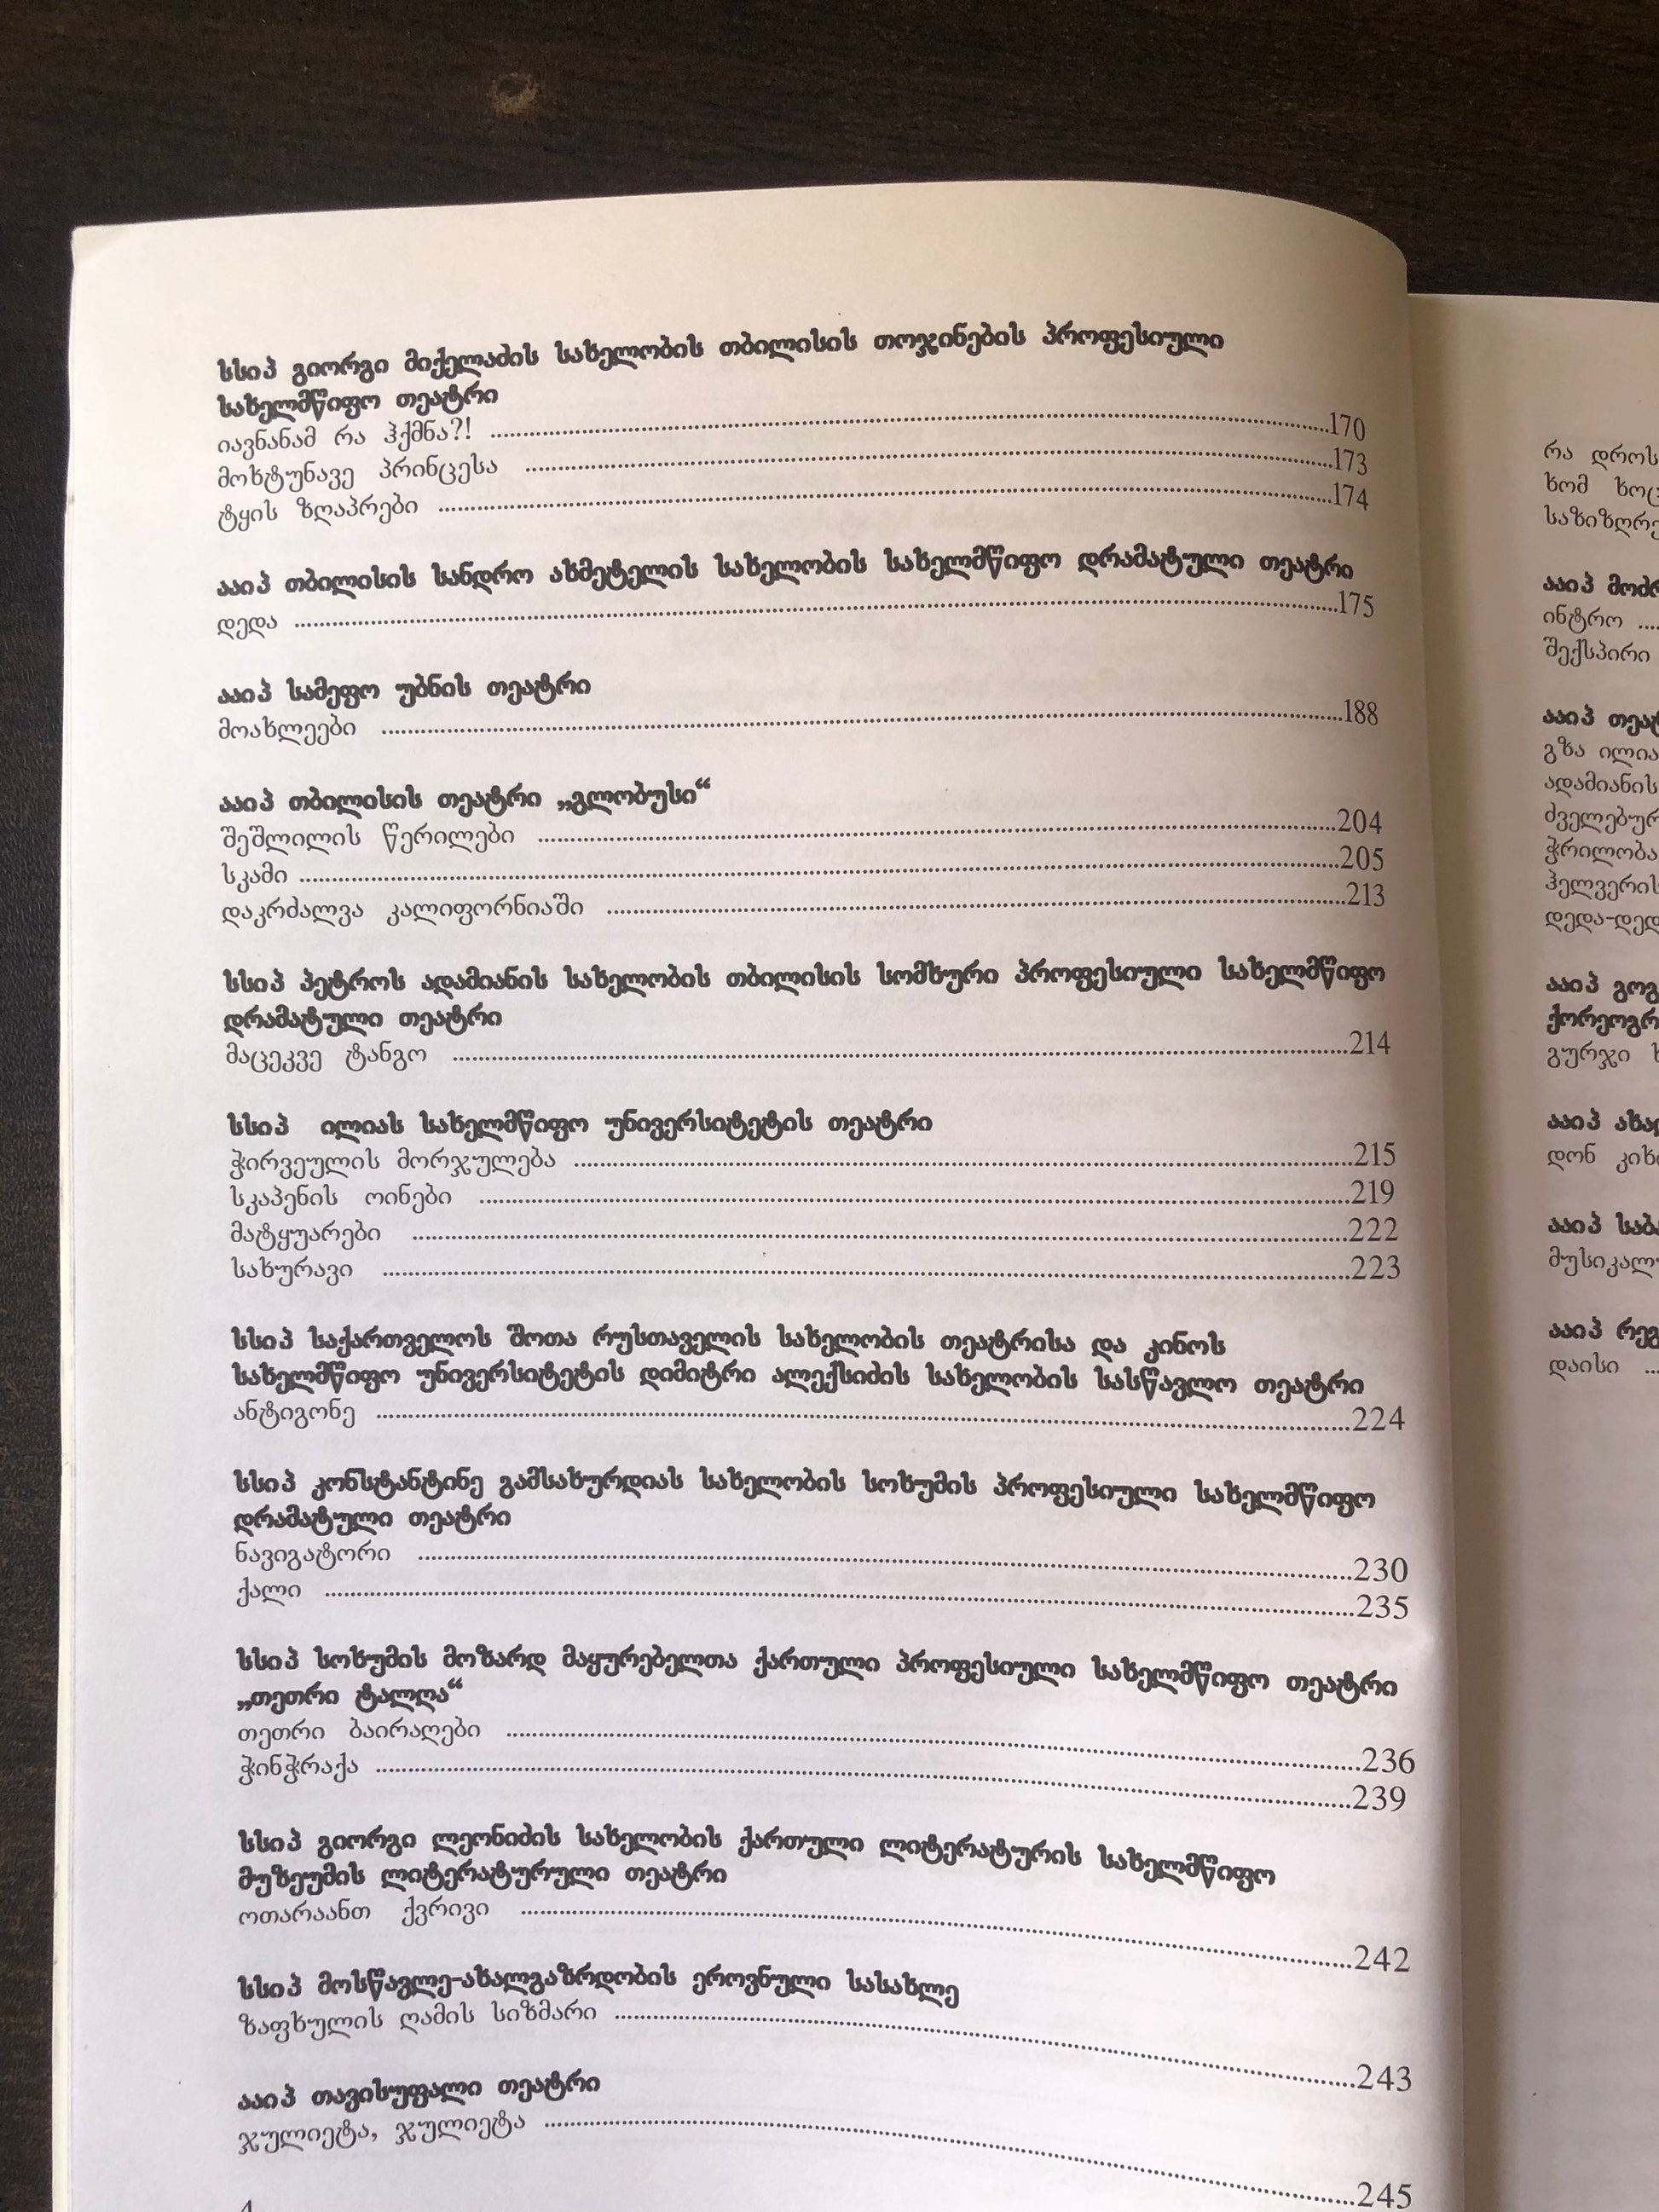 სსიპ გიორგი მიქელაძის სახელობის თბილისის თოჯინების პროფესიული
სახელმწიფო თეატრი
იავნანამ რა ჰქმნა?! ........................170
მოხტუნავე პრინცესა ........................173
ტყის ზღაპრები ........................174
ააიპ თბილისის სანდრო ახმეტელის სახელობის სახელმწიფო დრამატული თეატრი
დედა ........................175
ააიპ სამეფო უბნის თეატრი
მოახლეები ........................188
ააიპ თბილისის თეატრი „გლობუსი“
შეშლილის წერილები ........................204
სკამი ........................205
დაკრძალვა კალიფორნიაში ........................213
სსიპ პეტროს ადამიანის სახელობის თბილისის სომხური პროფესიული სახელმწიფო
დრამატული თეატრი
მაცეკვე ტანგო ........................214
სსიპ ილიას სახელმწიფო უნივერსიტეტის თეატრი
ჭირვეულის მორჯულება ........................215
სკაპენის ოინები ........................219
მატყუარები ........................222
სახურავი ........................223
სსიპ საქართველოს შოთა რუსთაველის სახელობის თეატრისა და კინოს
სახელმწიფო უნივერსიტეტის დიმიტრი ალექსიძის სახელობის სასწავლო თეატრი
ანტიგონე ........................224
სსიპ კონსტანტინე გამსახურდიას სახელობის სოხუმის პროფესიული სახელმწიფო
დრამატული თეატრი
ნავიგატორი ........................230
ქალი ........................235
სსიპ სოხუმის მოზარდ მაყურებელთა ქართული პროფესიული სახელმწიფო თეატრი
„თეთრი ტალღა“
თეთრი ბაირაღები ........................236
ჭინჭრაქა ........................239
სსიპ გიორგი ლეონიძის სახელობის ქართული ლიტერატურის სახელმწიფო
მუზეუმის ლიტერატურული თეატრი
ოთარაანთ ქვრივი ........................242
სსიპ მოსწავლე-ახალგაზრდობის ეროვნული სასახლე
ზაფხულის ღამის სიზმარი ........................243
ააიპ თავისუფალი თეატრი
ჯულიეტა, ჯულიეტა ........................245
რა დროს
ხომ
ააიპ
ინტრო ....
შექსპირი
ააიპ
გზა ილია
ადამიანის
ჭრილობა
დედა-დედ
ააიპ
გურჯი
ააიპ
დონ
ააიპ
ააიპ
დაისი ...